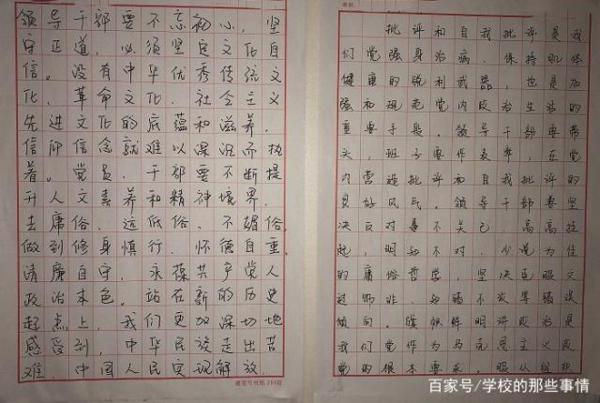 领导干部要不忘初心，坚
守正道，必须坚定文化自
信。没有中华优秀传统文
化、革命文化、社会主义
先进文化的底蕴和滋养，
信仰信念就难以深沉而执
着。党员、干部要不断提
升人文素养和精神境界，
去庸俗、远低俗、不媚俗，
做到修身慎行、怀德自重、
清廉自守，永葆共产党人
政治本色。站在新的历史
起点上，我们更加深切地
感受到，中华民族走出苦
难、中国人民实现解放
批评和自我批评是我
们党强身治病、保持肌体
健康的锐利武器，也是加
强和规范党内政治生活的
重要手段。领导干部要带
头，班子要作表率，在党
内营造批评和自我批评的
良好风气。领导干部要坚
决反对事不关己、高高挂
起，明知不对、少说为佳
的庸俗哲学，坚决克服文
过饰非、知错不改等错误
倾向。旗帜鲜明讲政治是
我们党作为马克思主义政
党的根本要求。服从组织
百家号/学校的那些事情